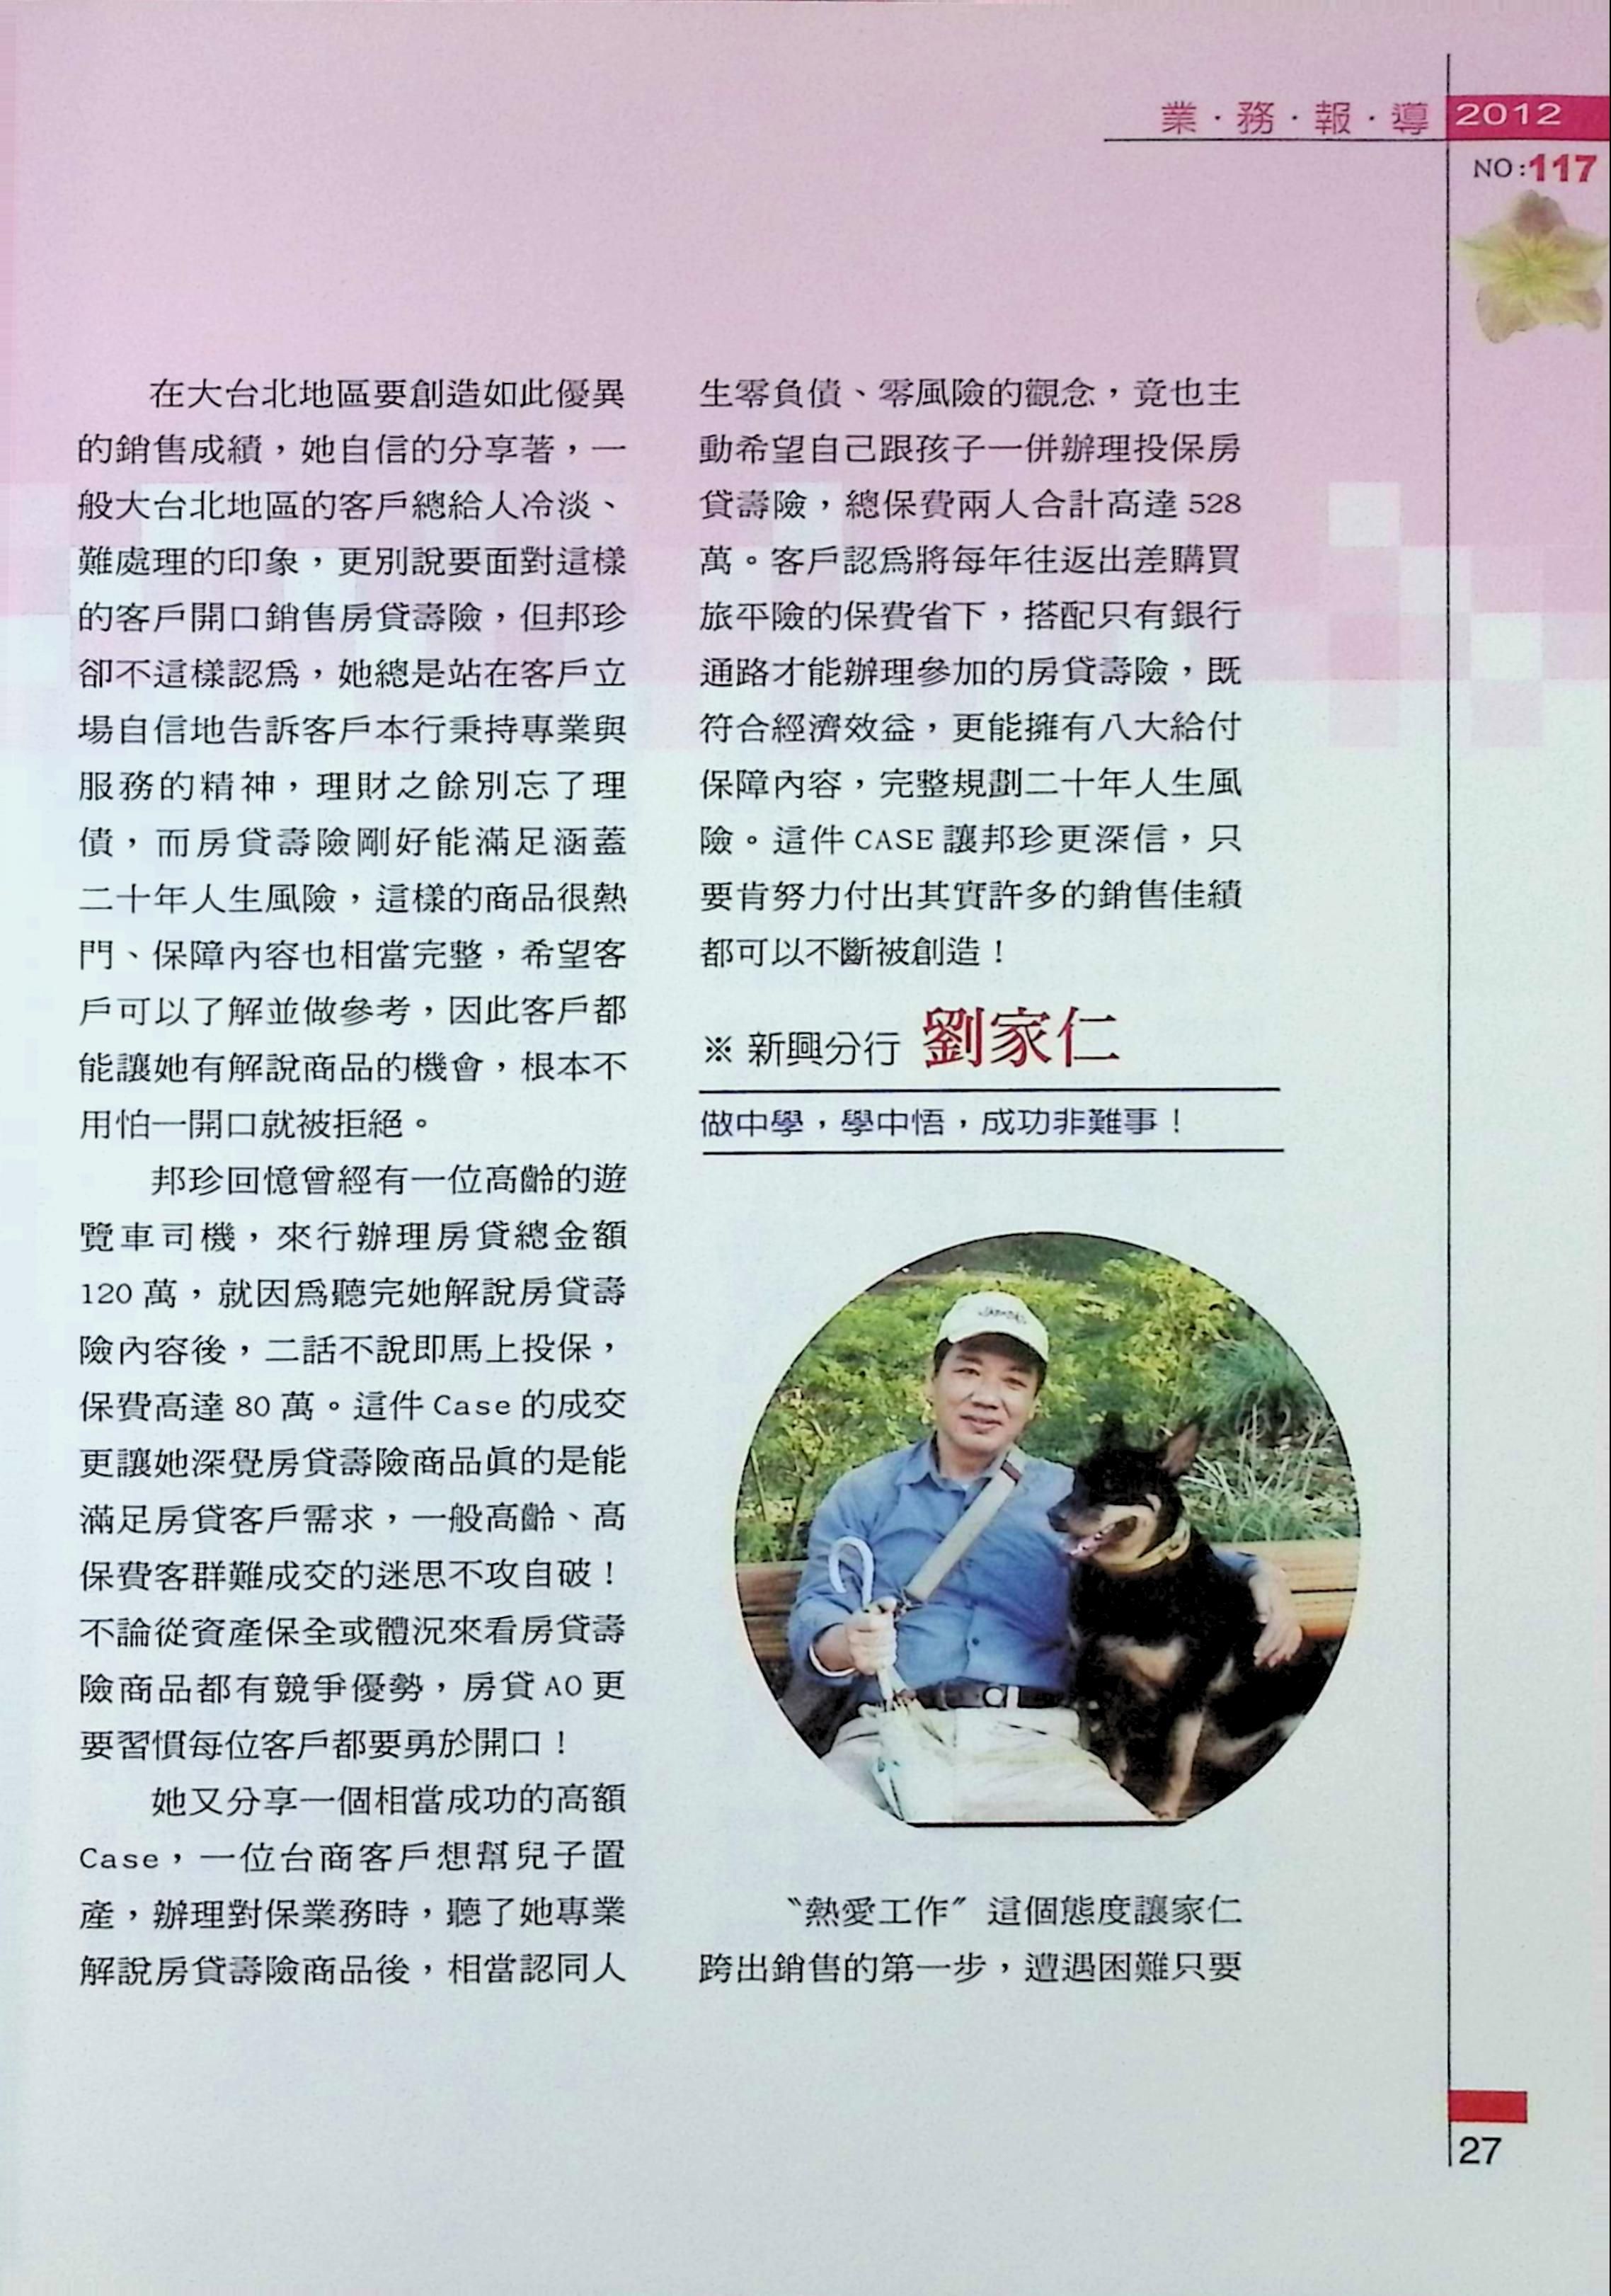 業·務·報·導 2012
NO:117
在大台北地區要創造如此優異
的銷售成績，她自信的分享著，一
般大台北地區的客戶總給人冷淡、
難處理的印象，更別說要面對這樣
的客戶開口銷售房貸壽險，但邦珍
卻不這樣認爲，她總是站在客戶立
場自信地告訴客戶本行秉持專業與
服務的精神，理財之餘別忘了理
債，而房貸壽險剛好能滿足涵蓋
二十年人生風險，這樣的商品很熱
門、保障內容也相當完整，希望客
戶可以了解並做參考，因此客戶都
能讓她有解說商品的機會，根本不
用怕一開口就被拒絕。
邦珍回憶曾經有一位高齡的遊
覽車司機，來行辦理房貸總金額
120 萬，就因爲聽完她解說房貸壽
險內容後，二話不說即馬上投保，
保費高達 80 萬。這件 Case 的成交
更讓她深覺房貸壽險商品眞的是能
滿足房貸客戶需求，一般高齡、高
保費客群難成交的迷思不攻自破！
不論從資產保全或體況來看房貸壽
險商品都有競爭優勢，房貸 AO 更
要習慣每位客戶都要勇於開口！
她又分享一個相當成功的高額
Case，一位台商客戶想幫兒子置
產，辦理對保業務時，聽了她專業
解說房貸壽險商品後，相當認同人
生零負債、零風險的觀念，竟也主
動希望自己跟孩子一併辦理投保房
貸壽險，總保費兩人合計高達 528
萬。客戶認爲將每年往返出差購買
旅平險的保費省下，搭配只有銀行
通路才能辦理參加的房貸壽險，既
符合經濟效益，更能擁有八大給付
保障內容，完整規劃二十年人生風
險。這件 CASE 讓邦珍更深信，只
要肯努力付出其實許多的銷售佳績
都可以不斷被創造！
※ 新興分行 劉家仁
做中學，學中悟，成功非難事！
〝熱愛工作〞這個態度讓家仁
跨出銷售的第一步，遭遇困難只要
27